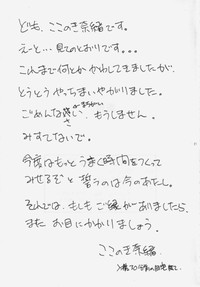 ども、ここのき奈緒です。
えーと…見てのとおりです。。。
これまで何とかかわしてきましたが、
とうとうやっちまいやがりました。
ごめんなさい もうしません。
みすてないで。
今度はもっとうまく時間をつくって
みせるぞと誓うのは今のあたし。
それでは、もしもご縁がありましたら、
また お目にかかりましょう。
ここのき奈緒